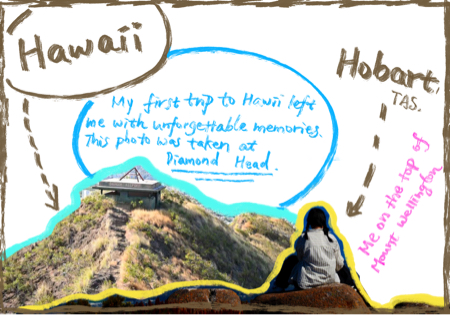 Hawaii
My first trip to Hawii left
me with unforgettable memories.
This photo was taken at
Diamond Head.
Hobart,
TAS.
Me on the top of
Mount Wellington